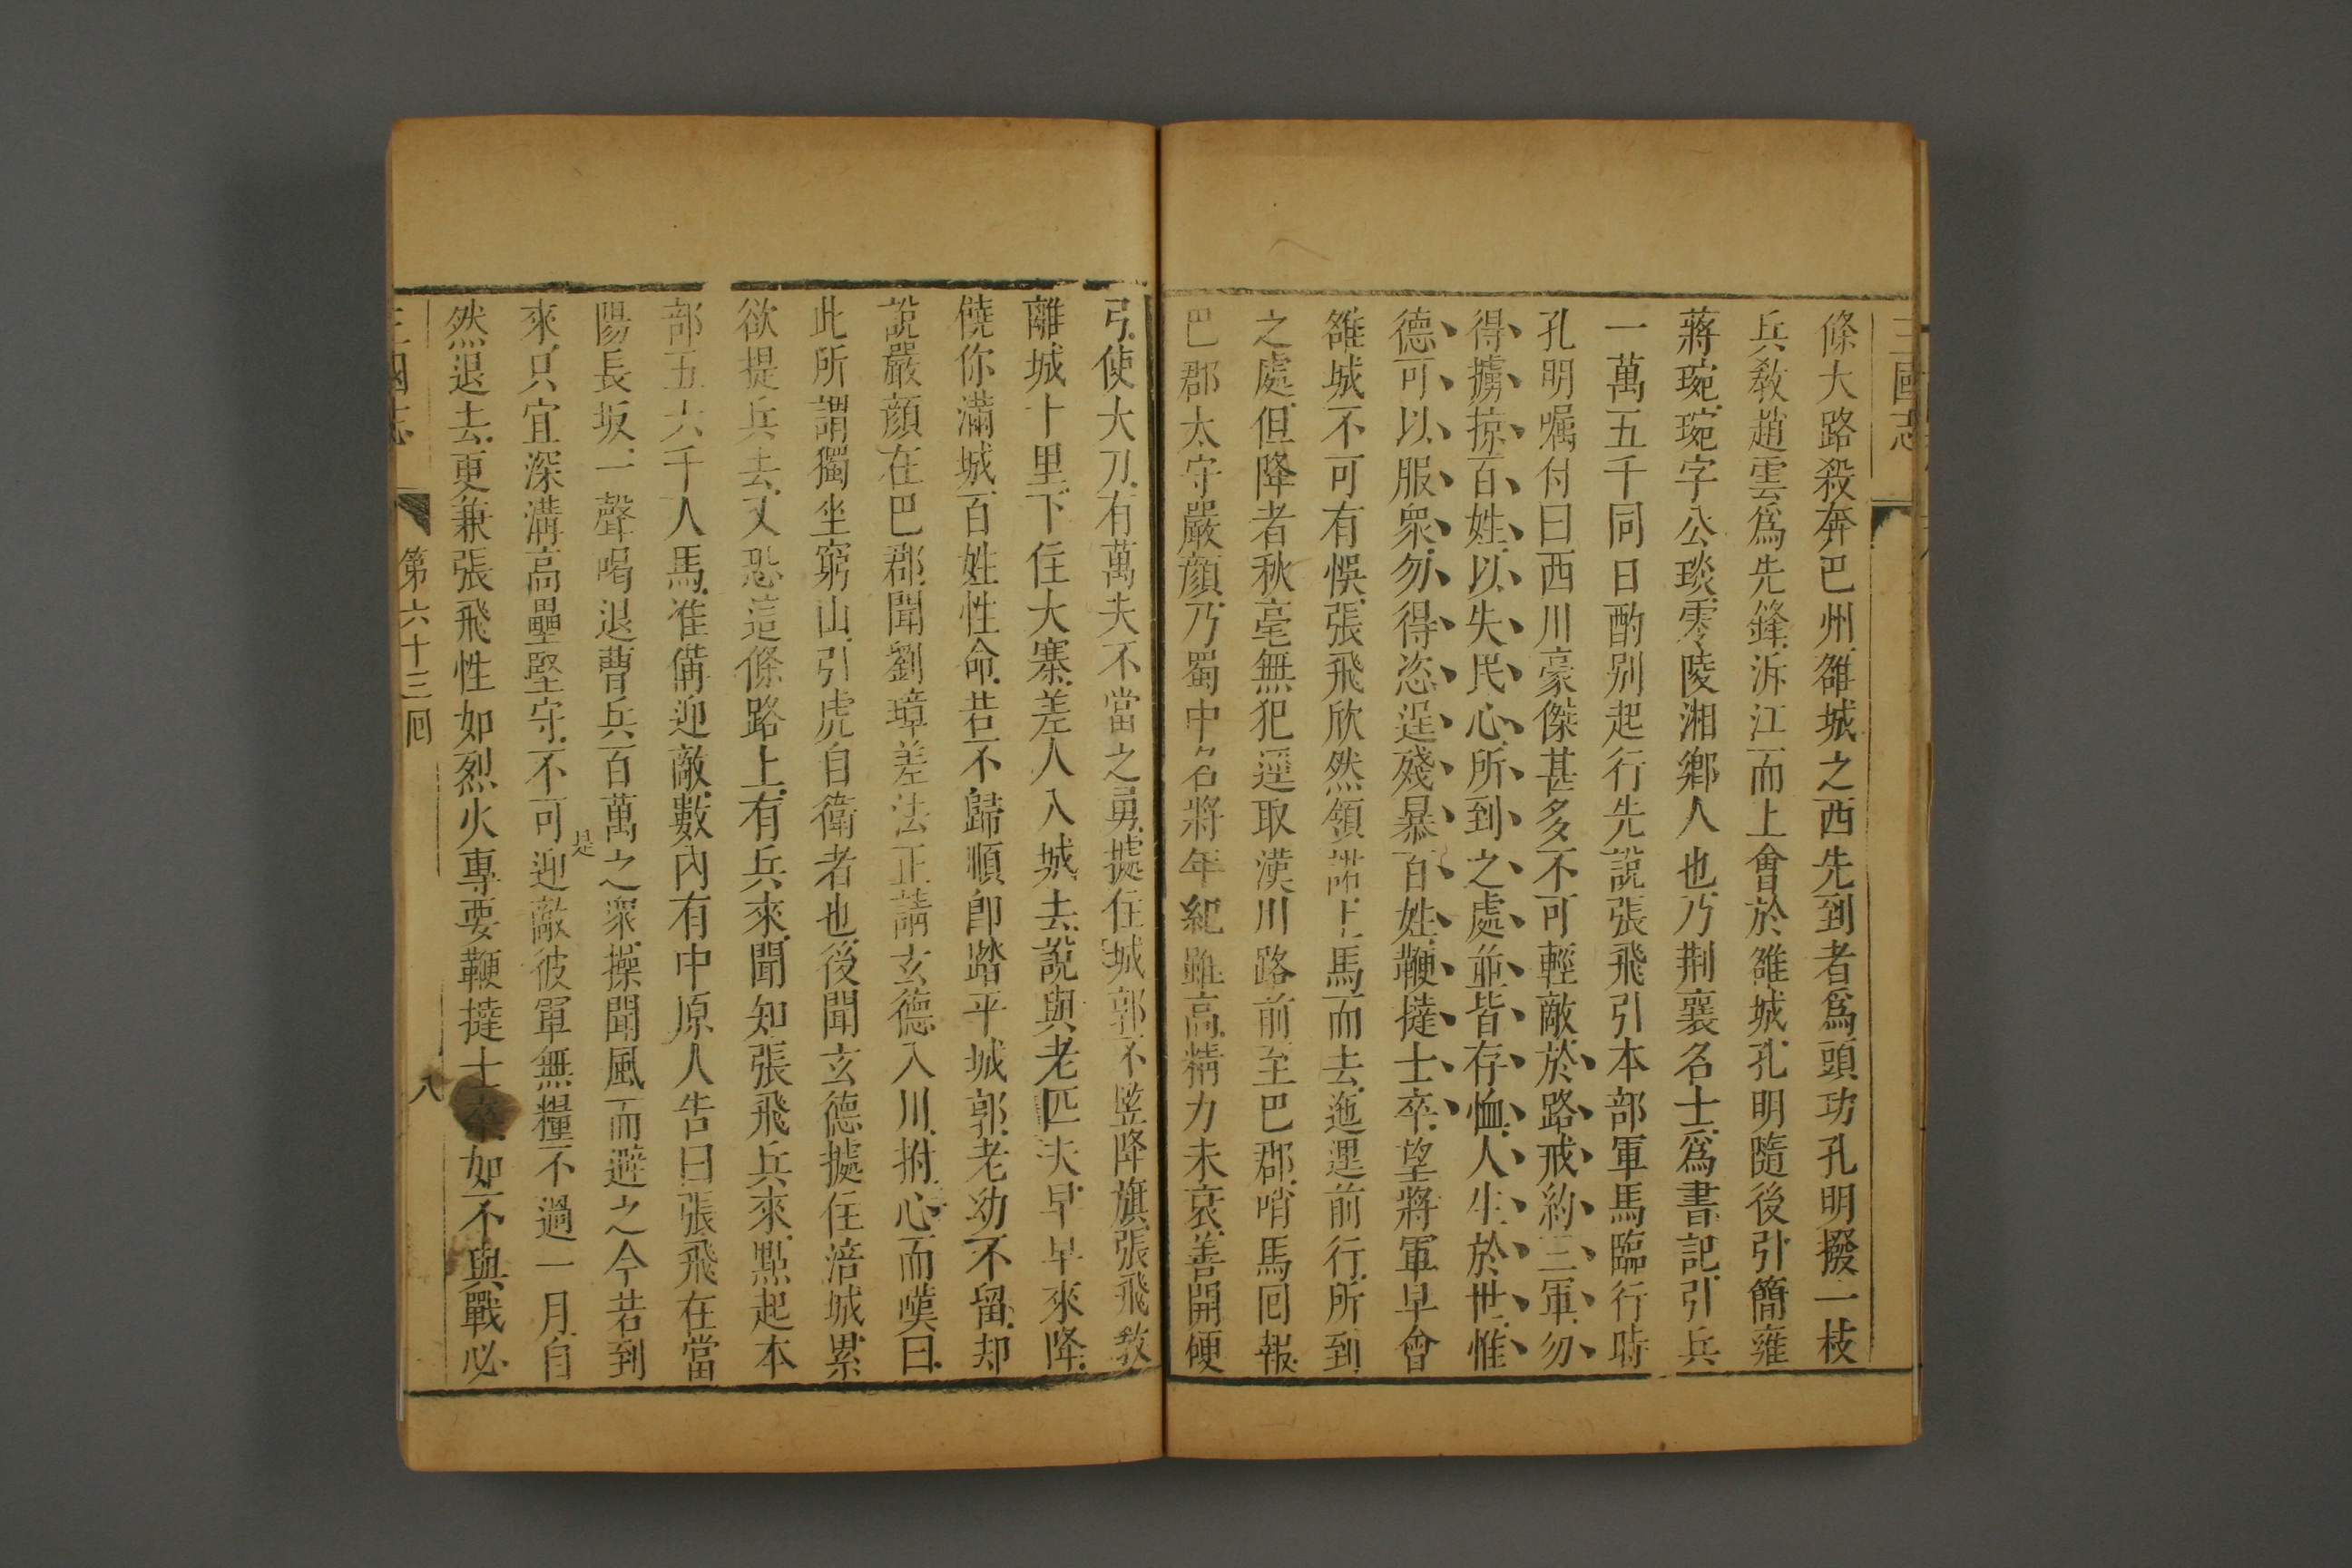 三國志
條大路殺奔巴州雒城之西先到者爲頭功孔明撥一枝
兵教趙雲爲先鋒泝江而上會於雒城孔明隨後引簡雍
蔣琬琬字公琰零陵湘鄉人也乃荆襄名士爲書記引兵
一萬五千同日酌别起行先說張飛引本部軍馬臨行時
孔明嘱付曰西川豪傑甚多不可輕敵於路戒約三軍勿
得擄掠百姓以失民心所到之處並皆存恤人生於世惟
德可以服衆勿得恣逞殘暴百姓鞭撻士卒望將軍早會
雒城不可有悞張飛欣然領諾上馬而去迤逦前行所到
之處但降者秋毫無犯逕取漢川路前至巴郡哨馬囘報
巴郡太守嚴顔乃蜀中名將年紀雖高精力未衰善開硬
弓使大刀有萬夫不當之勇據住城郭不竪降旗張飛教
離城十里下住大寨差人入城去說與老匹夫早早來降
饒你滿城百姓性命若不歸順卽踏平城郭老幼不留却
說嚴顔在巴郡聞劉璋差法正請玄德入川拊心而嘆曰
此所謂獨坐窮山引虎自衛者也後聞玄德據住涪城累
欲提兵去又恐這條路上有兵來聞知張飛兵來點起本
部五六千人馬准備迎敵數內有中原人告曰張飛在當
陽長坂一聲喝退曹兵百萬之衆操聞風而避之今若到
來只宜深溝高壘堅守不可迎敵彼軍無糧不過一月自
是
然退去更兼張飛性如烈火專要鞭撻士卒如不與戰必
三國志 第六十三囘 八